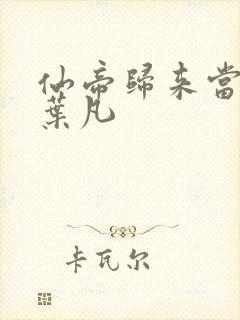 仙帝歸来當
葉凡
卡瓦尔